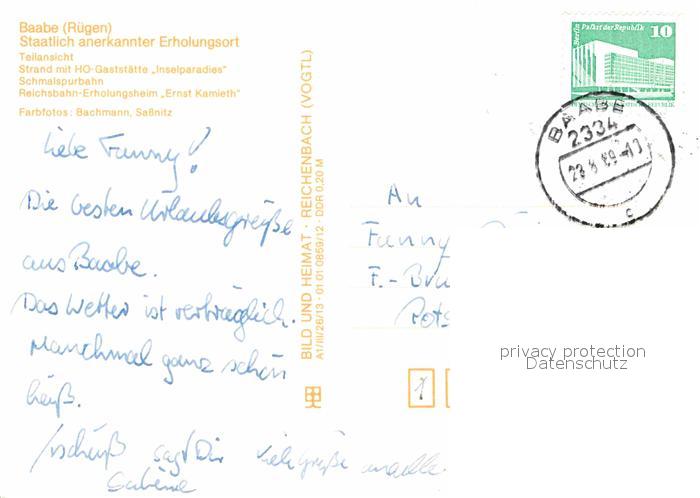 Baabe (Rügen)
Staatlich anerkannter Erholungsort
Teilansicht
Strand mit HO-Gaststätte „Inselparadies"
Schmalspurbahn
Reichsbahn-Erholungsheim „Ernst Kamieth"
Farbfotos: Bachmann, Saßnitz
Liebe Fanny!
Die besten Urlaubsgrüße
aus Baabe.
Das Wetter ist verträglich.
Manchmal ganz schön
heiß.
Tschüß sagt Dir
Sabine
Viele Grüße
BILD UND HEIMAT · REICHENBACH (VOGTL)
A1/III/26/13 · 01 01 0859/12 · DDR 0,20 M
Palast der Republik
10
BAABE
2334
c
An
Fanny
F.-
1
privacy protection
Datenschutz